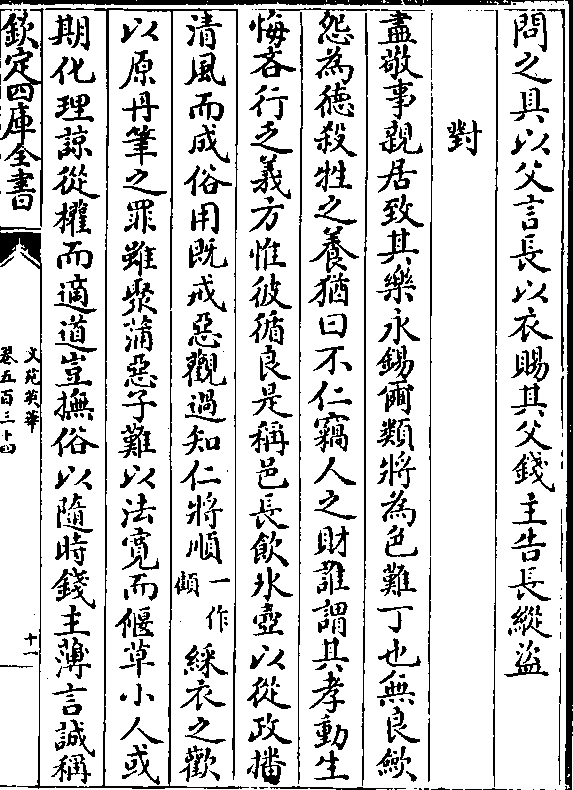 問之具以父言長以衣賜其父錢主告長縱盜
對
盡敬事親居致其樂永錫爾類將為色難丁也無良歛
怨為德殺牲之養猶曰不仁竊人之財誰謂其孝動生
悔吝行乏義方惟彼循良是稱邑長飲氷壺以從政播
清風而成俗用既戒惡觀過知仁將順一作傾綵衣之歡
以原丹筆之罪雖聚蒲惡子難以法寛而偃草小人或
期化理諒從權而適道豈撫俗以隨時錢主薄言誠稱
欽定四庫全書
文苑英華
卷五百三十四
十一